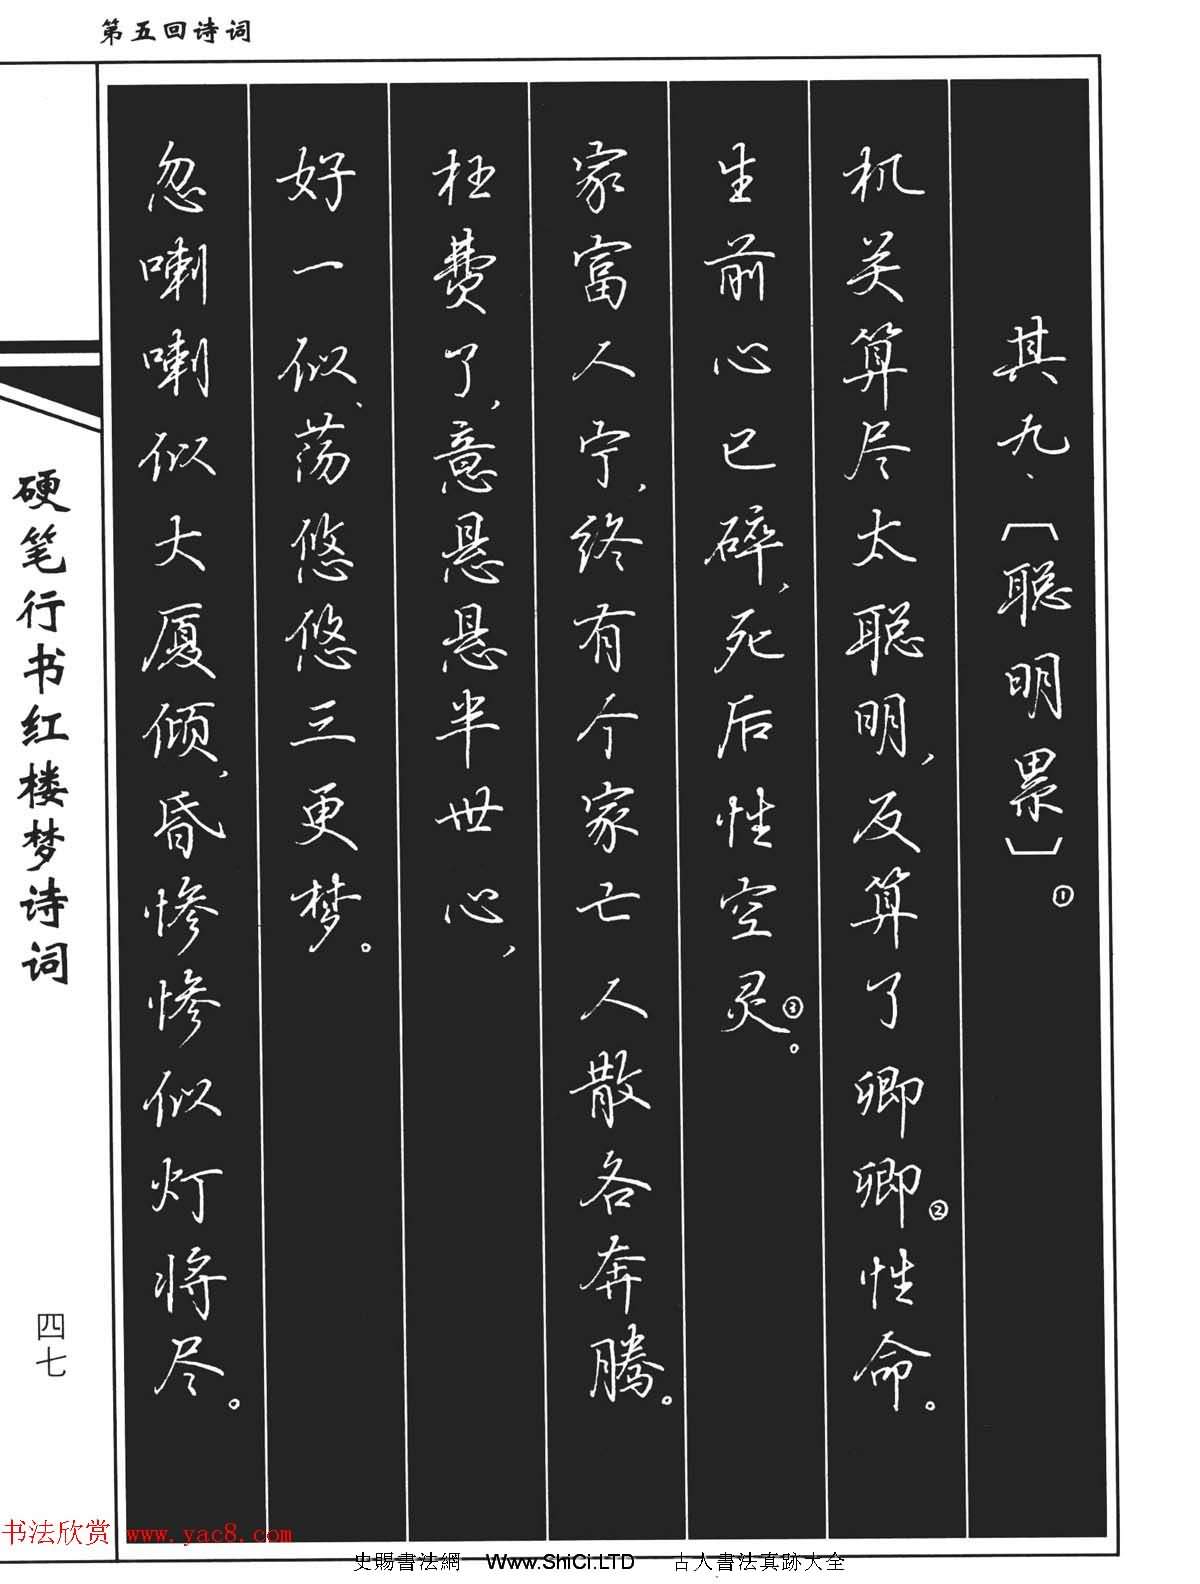 第五回诗词
其九·〔聪明累〕①
机关算尽太聪明,反算了卿卿②性命。
生前心已碎,死后性空灵③。
家富人宁,终有个家亡人散各奔腾。
枉费了,意悬悬半世心,
好一似、荡悠悠三更梦。
忽喇喇似大厦倾,昏惨惨似灯将尽。
硬笔行书红楼梦诗词
四七
书法欣赏 www.yac8.com
史賜書法網 Www.ShiCi.LTD 古人書法真跡大全